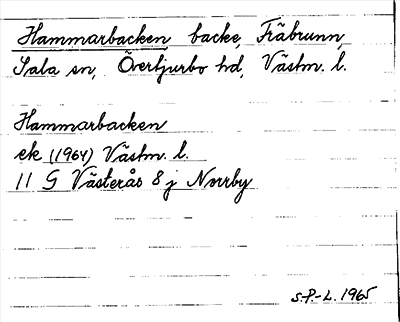 Hammarbacken backe, Fräbrunn,
Sala sn, Övertjurbo hd, Västm. l.
Hammarbacken
ek (1964) Västm. l.
11 G Västerås 8 j Norrby
S.P.-L. 1965